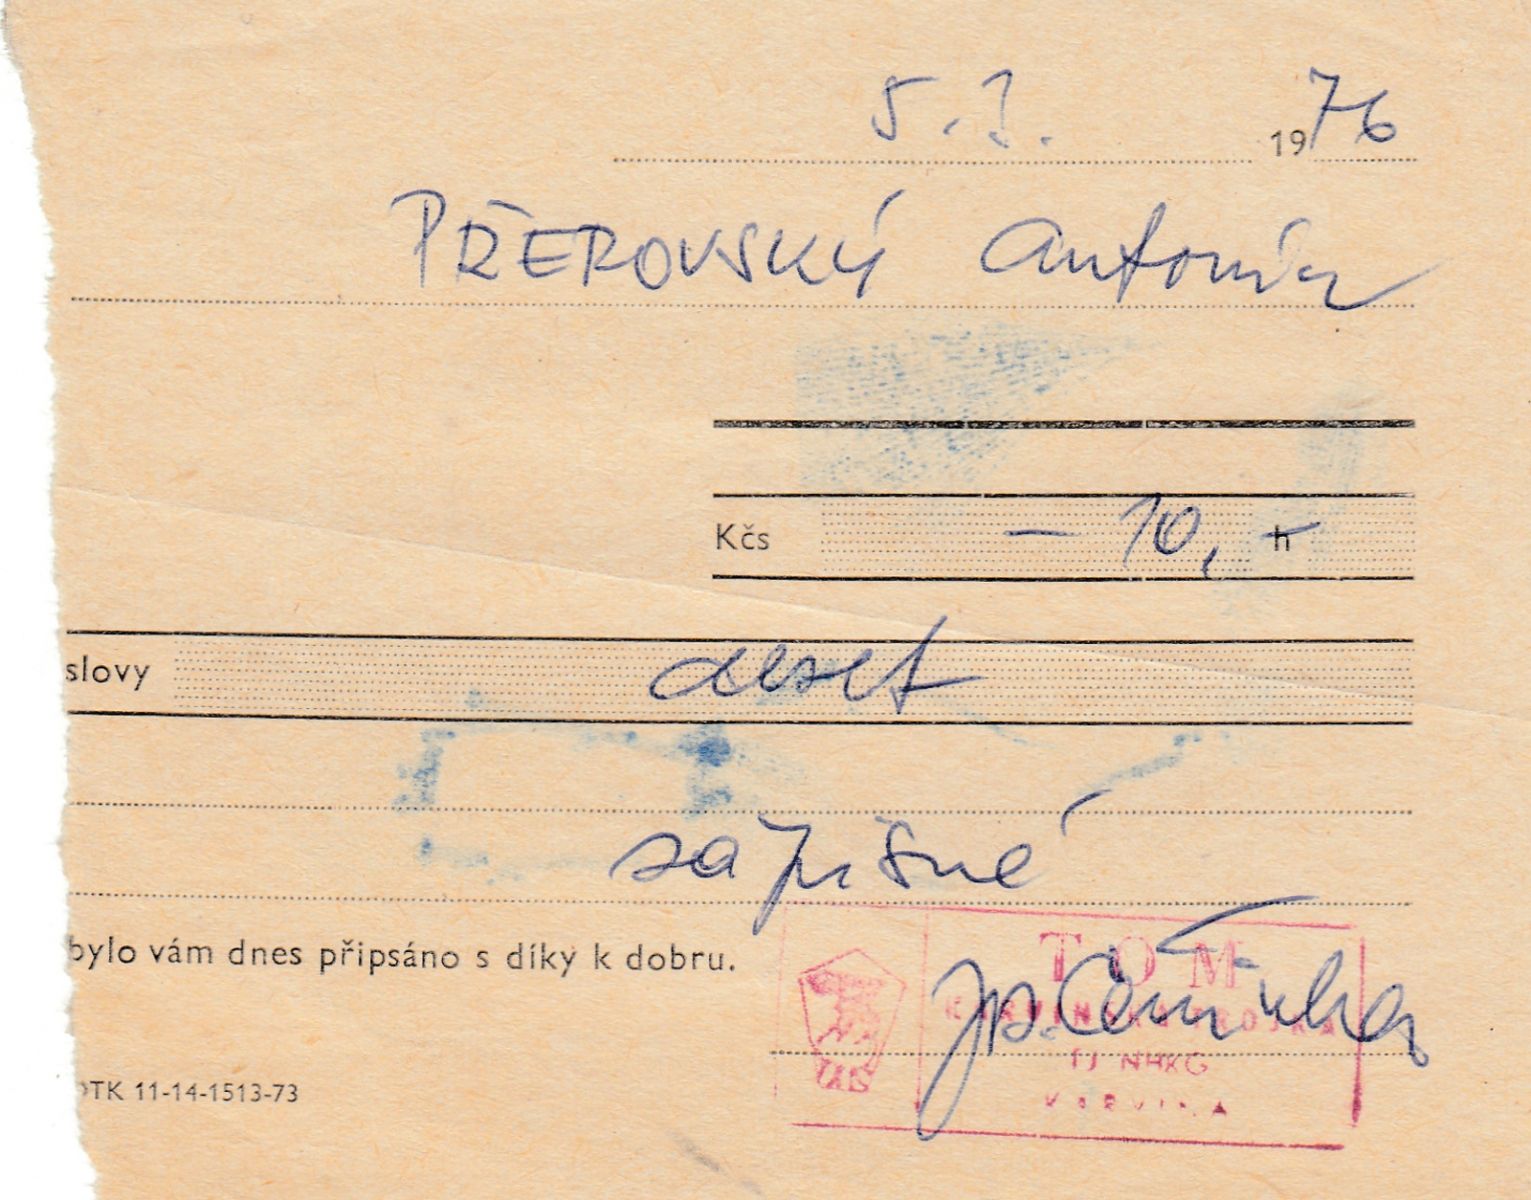 5. 3. 1976
PŘEROVSKÝ Antonín
Kčs – 10,– h
slovy deset
zápisné
bylo vám dnes připsáno s díky k dobru.
TOM
KARVINSKÁ TROJKA
TJ NHKG
KARVINÁ
OTK 11-14-1513-73